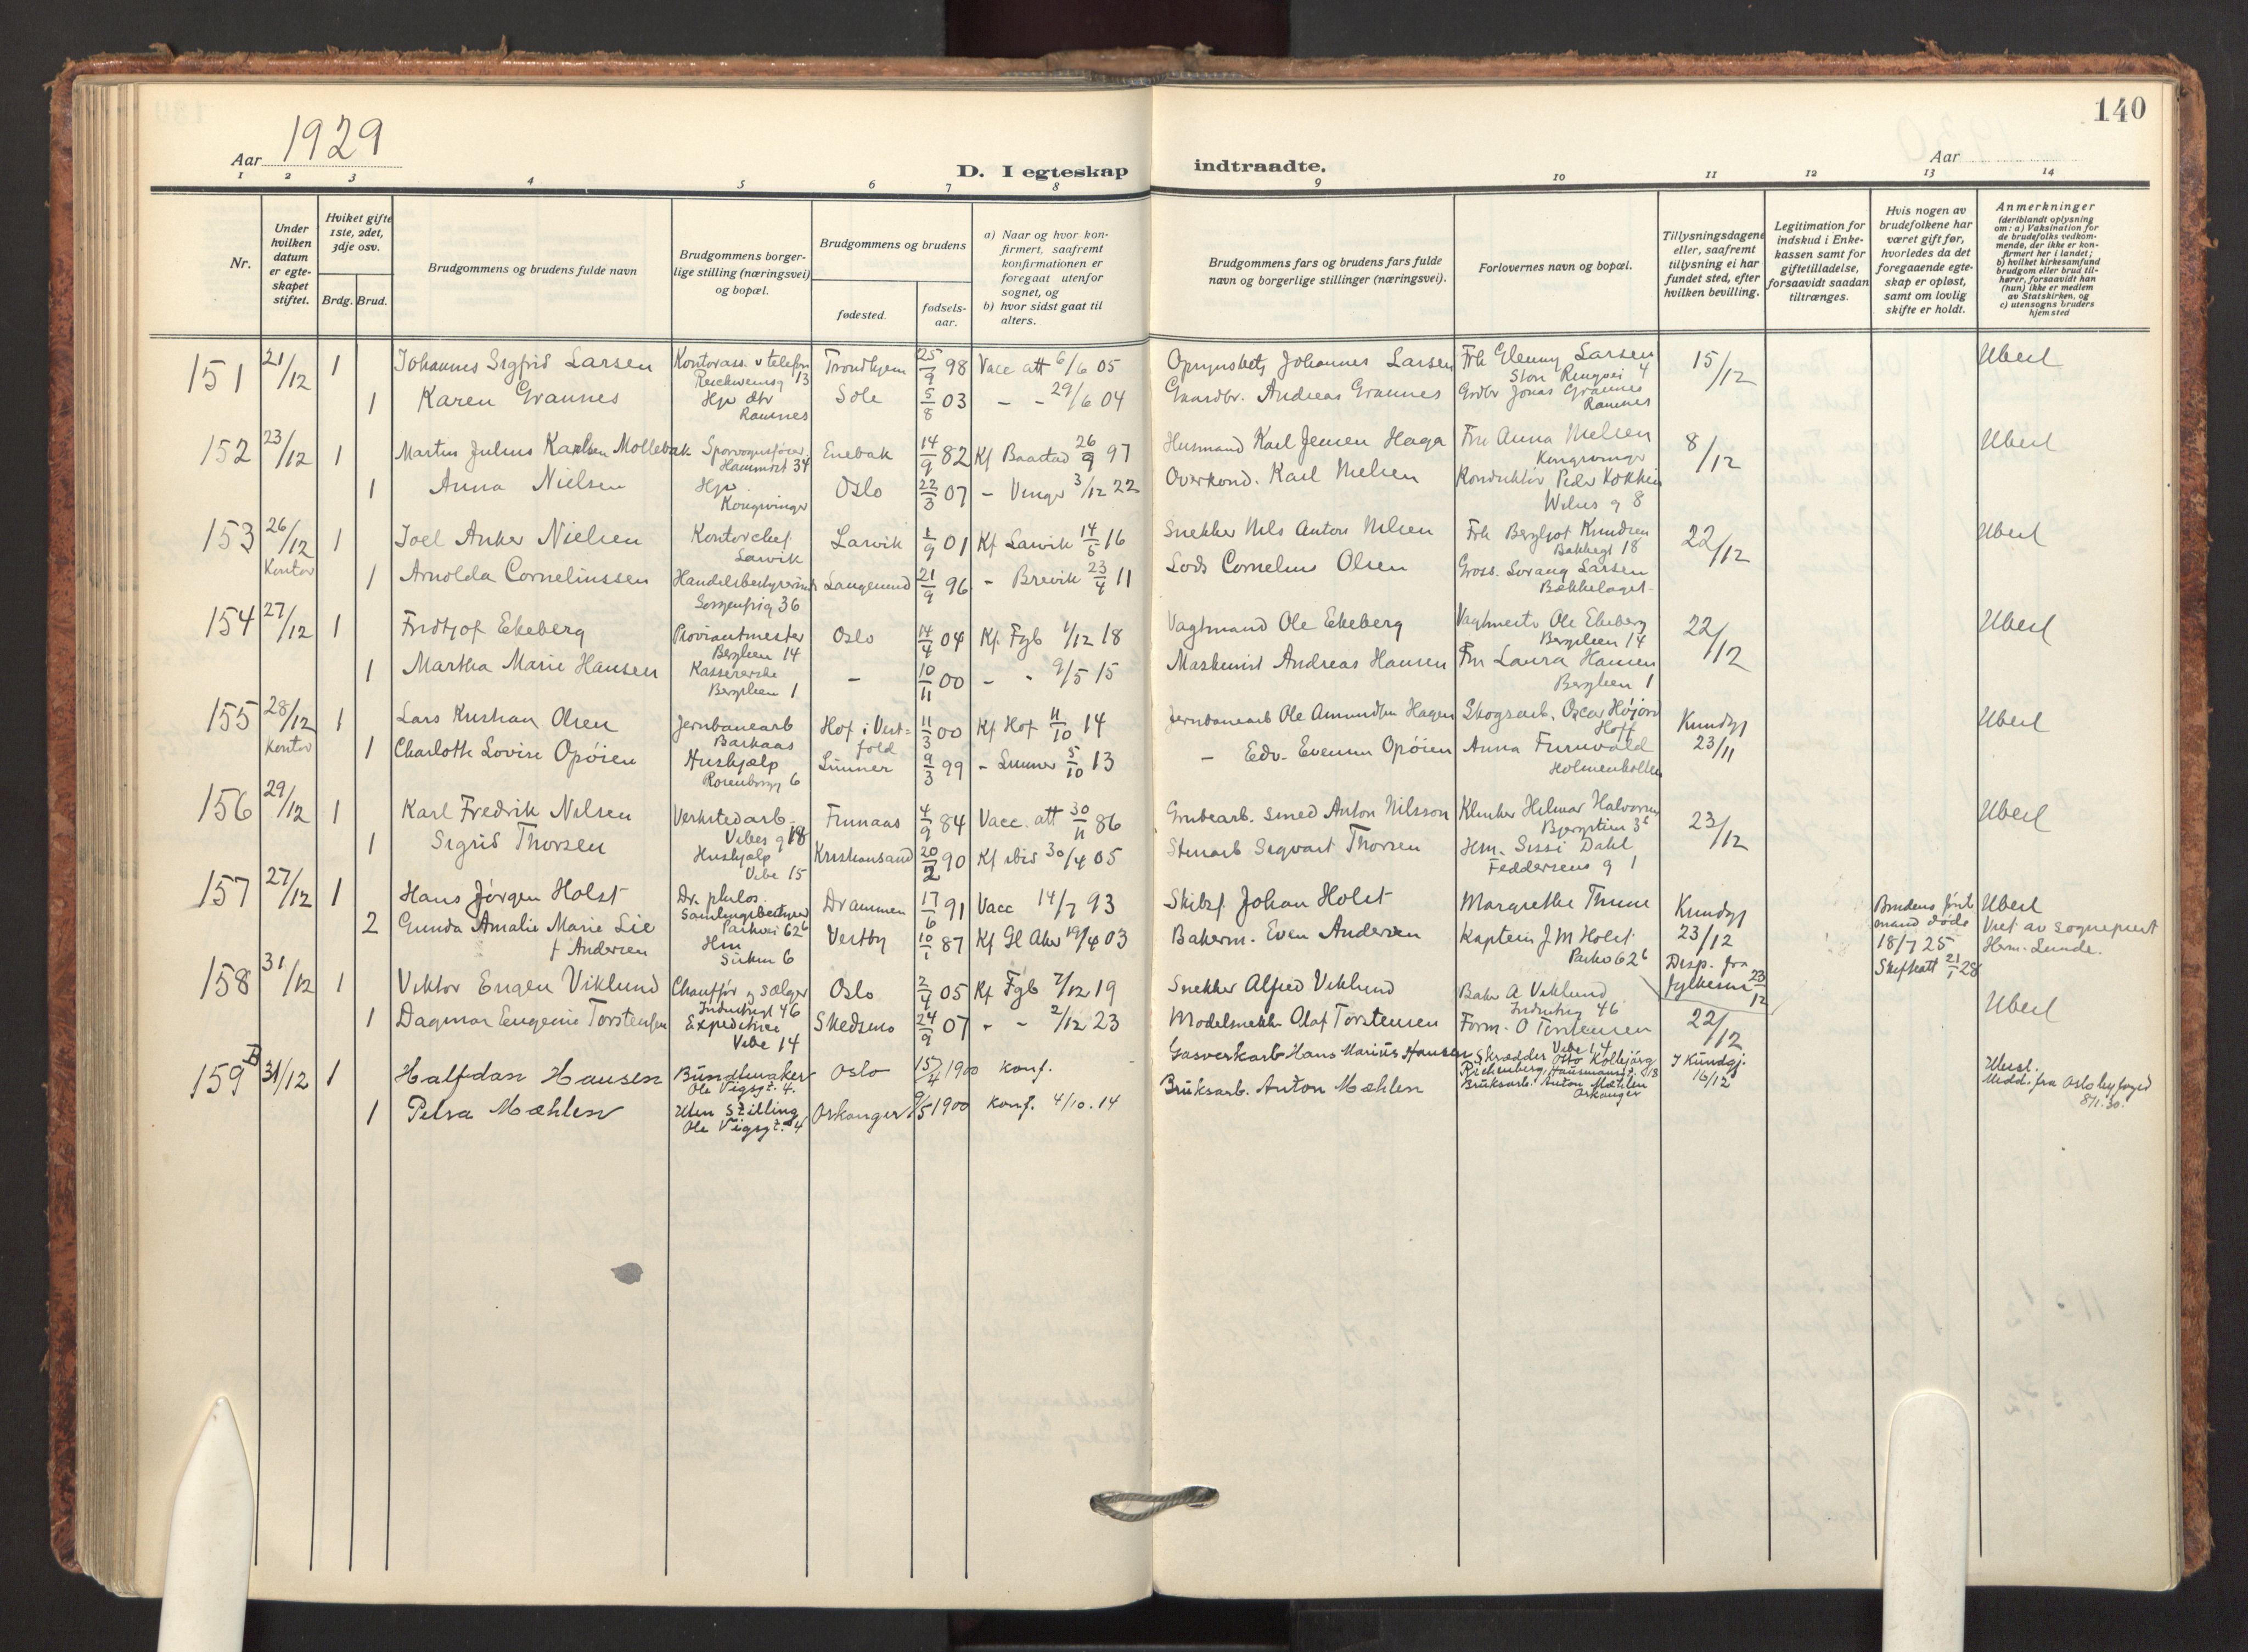 140
Aar 1929
D. I egteskap indtraadte.
Aar
1 2 3 4 5 6 7 8 9 10 11 12 13 14
Nr.
Under hvilken datum er egteskapet stiftet.
Hvilket gifte 1ste, 2det, 3dje osv.
Brdg. Brud.
Brudgommens og brudens fulde navn
Brudgommens borgerlige stilling (næringsvei) og bopæl.
Brudgommens og brudens
fødested.
fødselsaar.
a) Naar og hvor konfirmert, saafremt konfirmationen er foregaat utenfor sognet, og
b) hvor sidst gaat til alters.
Brudgommens fars og brudens fars fulde navn og borgerlige stillinger (næringsvei).
Forlovernes navn og bopæl.
Tillysningsdagene eller, saafremt tillysning ei har fundet sted, efter hvilken bevilling.
Legitimation for indskud i Enkekassen samt for giftetilladelse, forsaavidt saadan tiltrænges.
Hvis nogen av brudefolkene har været gift før, hvorledes da det foregaaende egteskap er opløst, samt om lovlig skifte er holdt.
Anmerkninger (deriblandt oplysning om: a) Vaksination for de brudefolks vedkommende, der ikke er konfirmert her i landet; b) hvilket kirkesamfund brudgom eller brud tilhører, forsaavidt han (hun) ikke er medlem av Statskirken, og c) utensogns bruders hjemsted
151 21/12 1 Johannes Sigfrid Larsen Kontorass. v telefon 13 Trondhjem 25/9 98 Vacc att 6/6 05 Johannes Larsen Frk Glenny Larsen Ston Ringvei 4 15/12 Uberl
1 Karen Grannes Hjv dtr Ramnes Sole 5/8 03 - - 29/6 04 Gaardbr. Andreas Grannes Grdbr Jonas Grannes Ramnes
152 23/12 1 Martin Julius Karlsen Mollebak Sporvognsfører Hammerst 34 Enebak 14/9 82 Kf Baastad 26/9 97 Husmand Karl Jensen Haga Fru Anna Nielsen Kongsvinger 8/12 Uberl
1 Anna Nielsen Hjv. Kongsvinger Oslo 22/3 07 - Vinger 3/12 22 Overkond. Karl Nielsen Konduktør Peder Kokkin g 8
153 26/12 Kontor 1 Joel Anker Nielsen Kontorchef Larvik Larvik 1/9 01 Kf Larvik 14/5 16 Snekker Nils Anton Nilsen Frk Bergljot Knudsen Bakkegt 18 22/12 Uberl
1 Arnolda Corneliussen Handelsbestyrerinde Sorgenfrig 36 Langesund 21/9 96 - Brevik 23/4 11 Lods Cornelius Olsen Gross. Lorang Larsen Bækkelaget
154 27/12 1 Fridtjof Ekeberg Proviantmester Bergslien 14 Oslo 14/4 04 Kf Fgb 1/12 18 Vagtmand Ole Ekeberg Vagtmester Ole Ekeberg Bergslien 14 22/12 Uberl
1 Martha Marie Hansen Kassererske Bergslien 1 - 10/11 00 - - 9/5 15 Maskinist Andreas Hansen Fru Laura Hansen Bergslien 1
155 28/12 Kontor 1 Lars Kristian Olsen Jernbanearb Barkaas Hof i Vestfold 11/3 00 Kf Hof 11/10 14 Jernbanearb Ole Amundsen Hagen Skogsarb. Oscar Højord Hoff Kundgj 23/11 Uberl
1 Charlotte Lovise Opøien Hushjælp Rosenborgg 6 Lunner 9/3 99 - Lunner 5/10 13 - Edv. Evensen Opøien Anna Furuvald Holmenkollen
156 29/12 1 Karl Fredrik Nilsen Verkstedarb. Vibes g 18 Finnaas 4/9 84 Vacc. att 30/11 86 Grubearb. smed Anton Nilsson Klinker Hilmar Halvorsen 23/12 Uberl
1 Sigrid Thorsen Hushjælp Vibe 15 Kristiansand 20/2 90 Kf ibid 30/4 05 Stenarb Sigvart Thorsen Hm. Sissi Dahl Feddersens g 1
157 27/12 1 Hans Jørgen Holst Dr. philos. Samlingsbestyrer Parkvei 62 b Drammen 17/6 91 Vacc 14/7 93 Skibsf Johan Holst Margrethe Thune Kundgj 23/12 Brudens første mand døde 18/7 25 Skifteatt 21/1 28 Uberl Viet av sogneprest Herm. Lunde.
2 Gunda Amalie Marie Lie f Andersen Hm 6 Vestby 10/1 87 Kf Gl Aker 19/4 03 Bakerm. Even Andersen Kaptein J M Holst Parkv 62 b Disp. fra fylkesm 23/12
158 31/12 1 Viktor Eugen Viklund Chauffør og sælger Industrigt 46 Oslo 2/4 05 Kf Fgb 7/12 19 Snekker Alfred Viklund Baker A Viklund Industrig 46 22/12 Uberl
1 Dagmar Eugenie Torstensen Expeditrice Vibe 14 Skedsmo 24/9 07 - - 2/12 23 Modelsnekk Olaf Torstensen Form. O Torstensen Vibe 14
159 B 31/12 1 Halfdan Hansen Bundtmaker Ole Vigsgt. 4. Oslo 15/4 1900 konf. Gasverkarb Hans Marius Hansen Skrædder Otto Kolbjörg Richenberg, Hausmannsgt. 18 I Kundgj. 16/12 Uberl. Medd. fra Oslo byfoged 8/1.30.
1 Petra Mæhlen Uten Stilling Ole Vigsgt. 4 Orkanger 9/5 1900 konf. 4/10.14 Bruksarb. Anton Mæhlen Bruksarb. Anton Mæhlen Orkanger